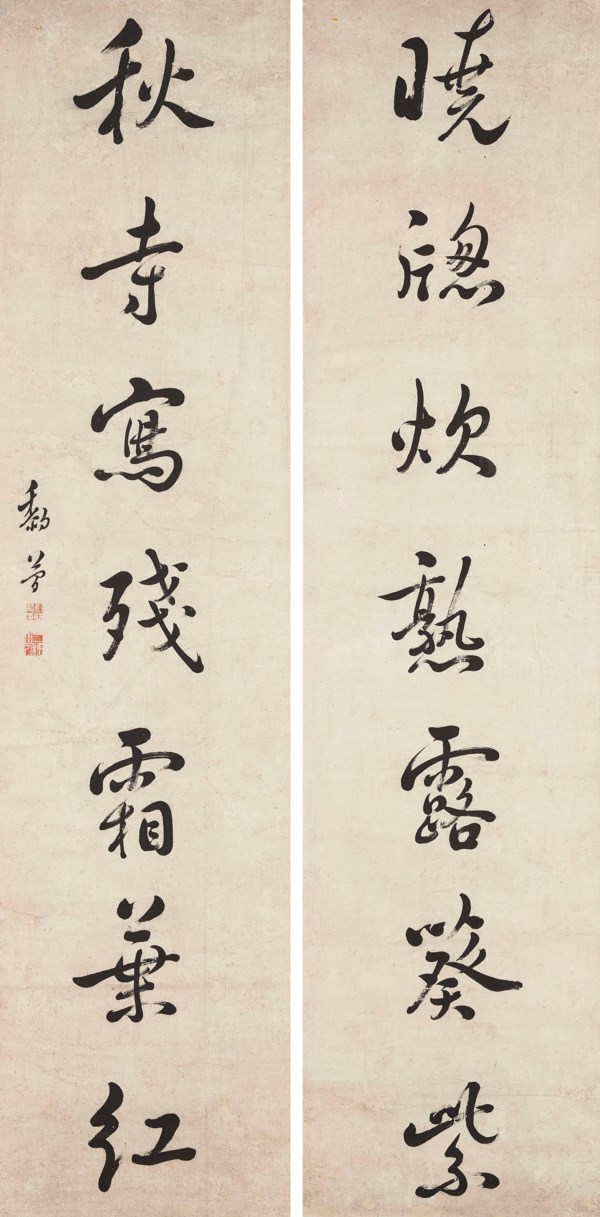 曉牕炊熟露葵紫
秋寺寫殘霜葉紅